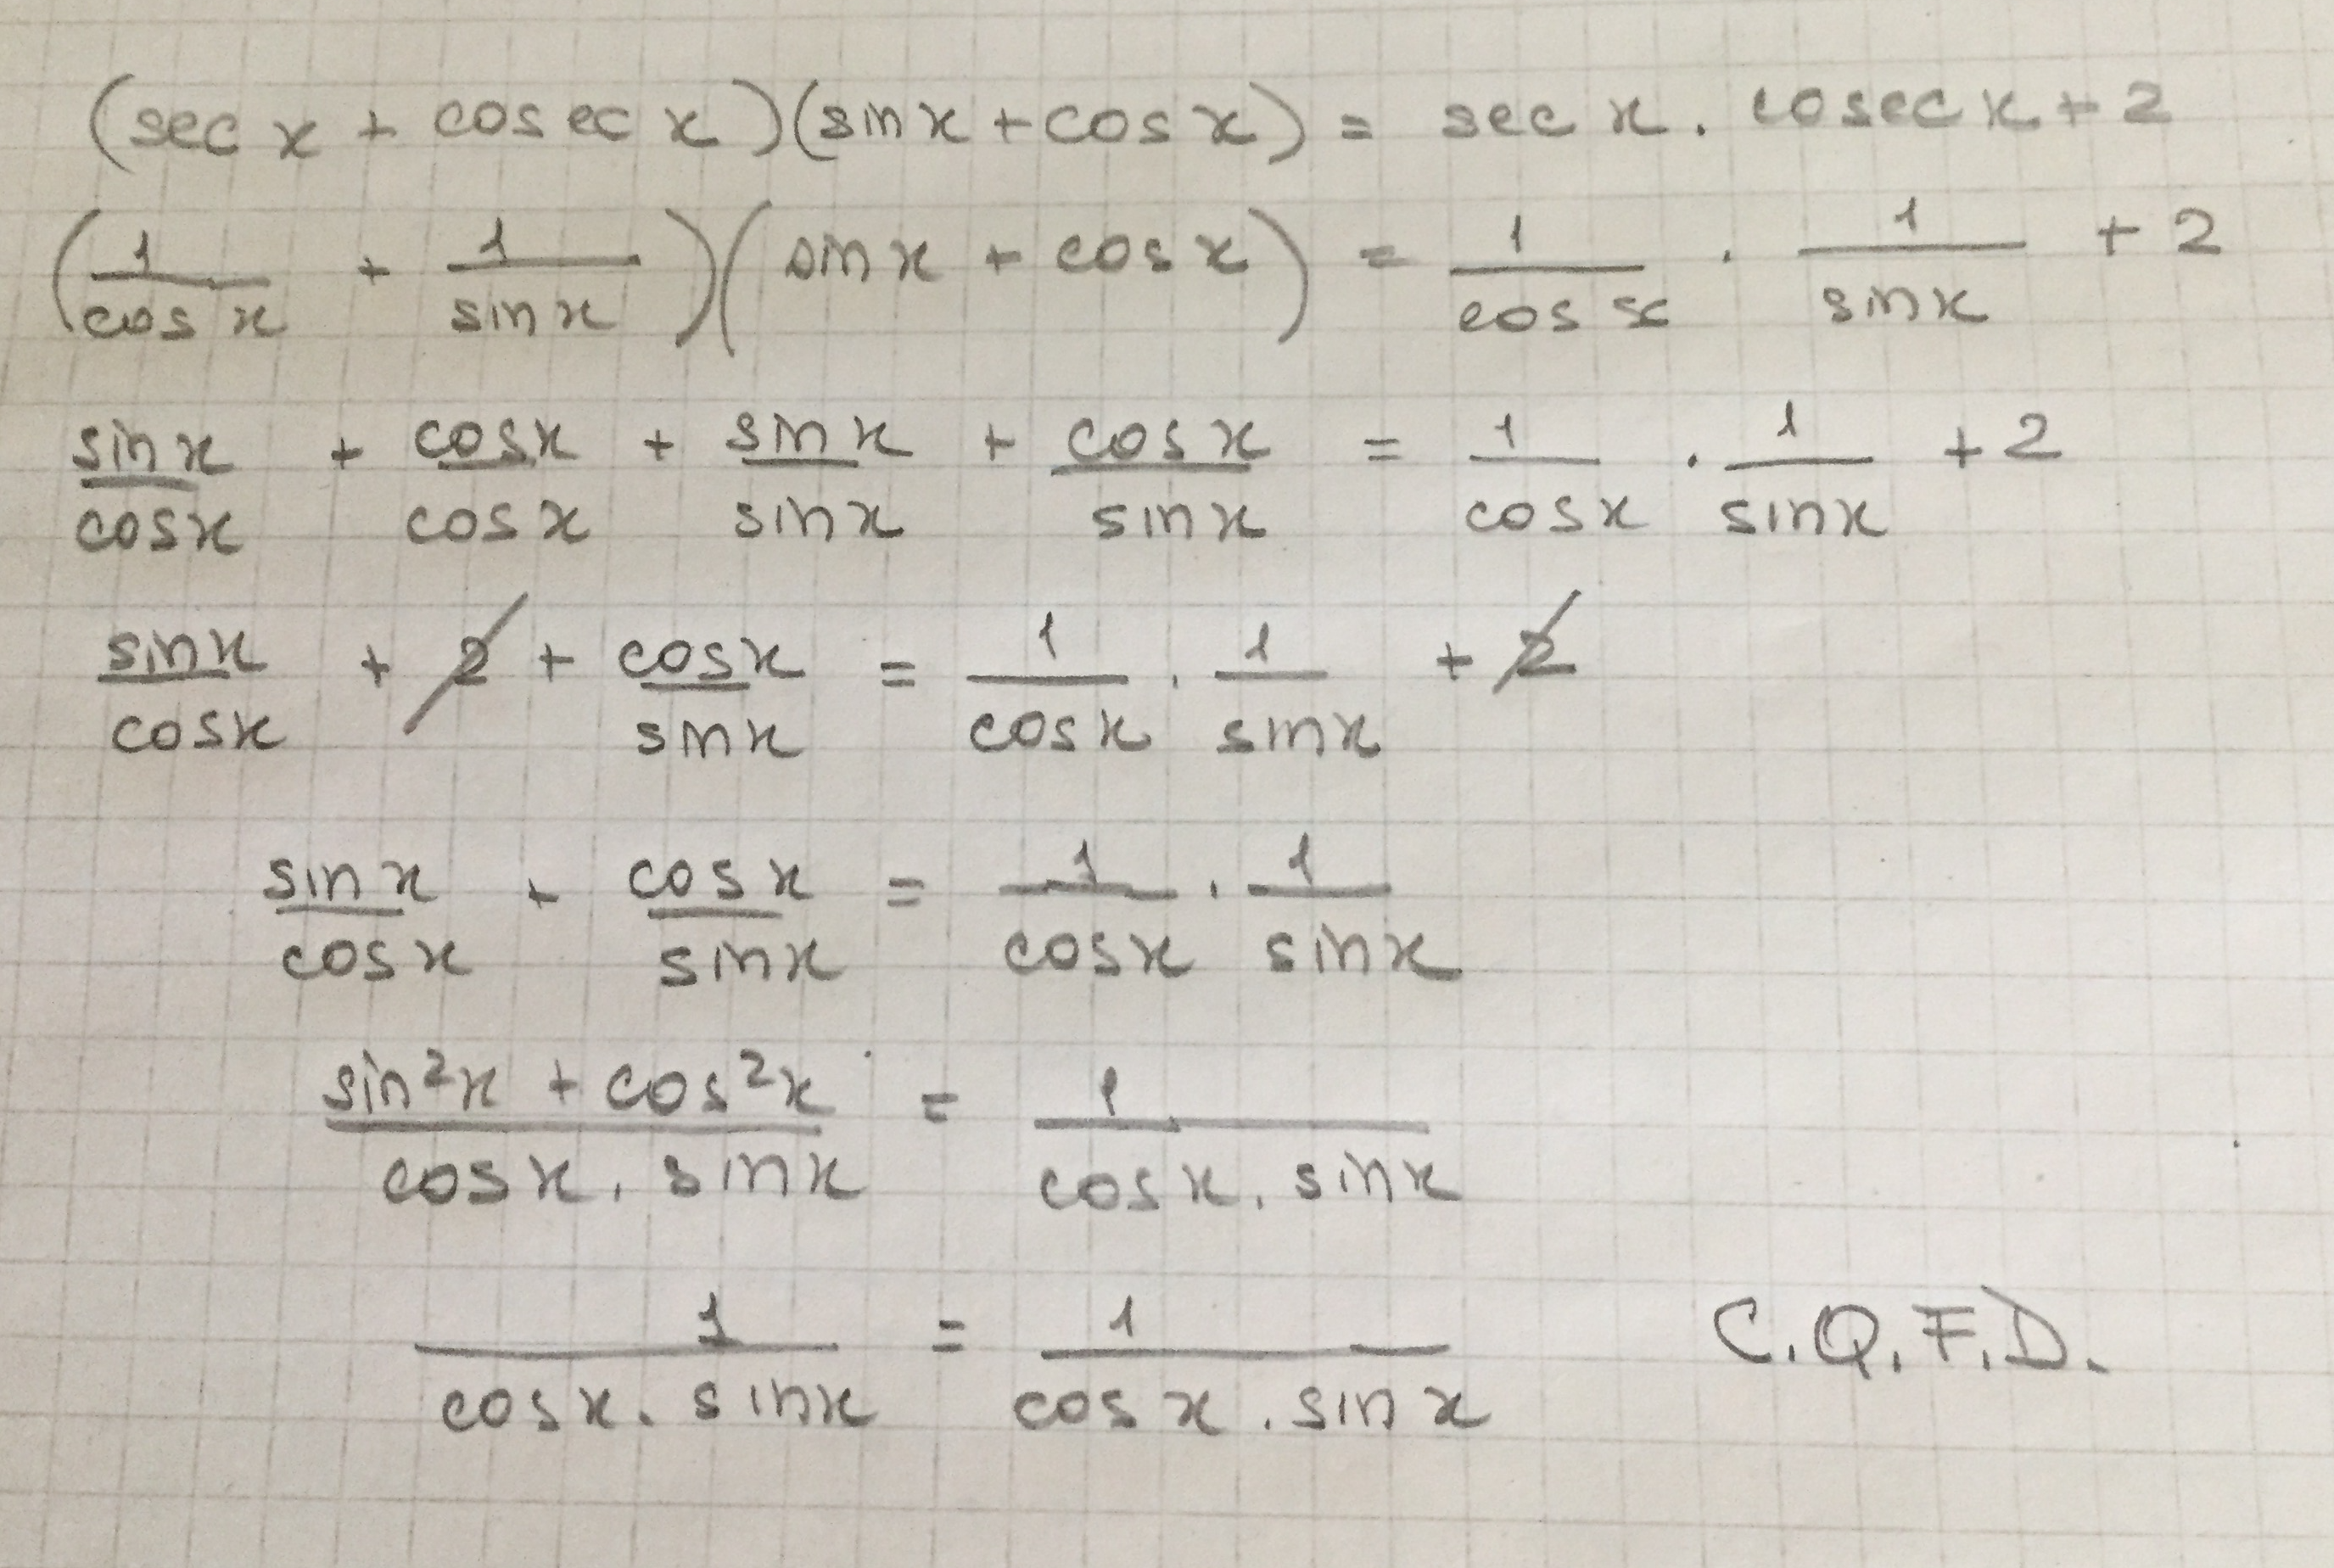 (sec x + cosec x)(sin x + cos x) = sec x . cosec x + 2
(1/cos x + 1/sin x)(sin x + cos x) = 1/cos x . 1/sin x + 2
sin x/cos x + cos x/cos x + sin x/sin x + cos x/sin x = 1/cos x . 1/sin x + 2
sin x/cos x + 2 + cos x/sin x = 1/cos x . 1/sin x + 2
sin x/cos x + cos x/sin x = 1/cos x . 1/sin x
sin²x + cos²x/cos x . sin x = 1/cos x . sin x
1/cos x . sin x = 1/cos x . sin x C.Q.F.D.